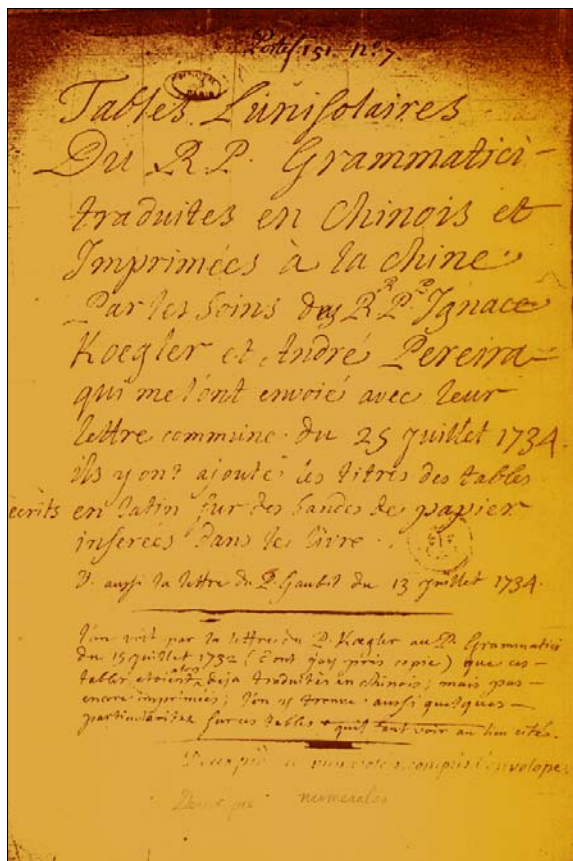 Portef. 151. nº. 7.
Tables Lunisolaires
Du R P. Grammatici-
traduites en Chinois et
Imprimées à la chine.
Par les soins des RR. PP. Ignace
Koegler et André Pereira
qui me l'ont envoié avec leur
lettre commune du 25 juillet 1734.
ils y ont ajouté les titres des tables
écrits en latin sur des bandes de papier
inserées dans le livre.
V. aussi la lettre du P. Gaubil du 13 juillet 1734.
l'on voit par la lettre du P. Koegler au P. Grammatici
du 15 juillet 1732 (dont j'ay pris copie) que ces-
tables etoient alors deja traduites en chinois; mais pas-
encore imprimées; l'on y trouve aussi quelques-
particularités sur ces tables qu'il faut voir au lieu cité.
compris l'envelope
numerales